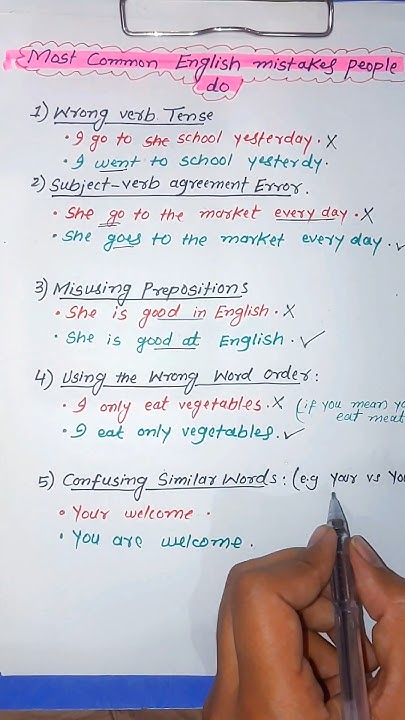 Most Common English mistakes people
do
1) Wrong verb Tense
• I go to she school yesterday. X
• I went to school yesterdy.
2) Subject-verb agreement Error.
• She go to the market every day. X
• She goes to the market every day. ✓
3) Misusing Prepositions
• She is good in English. X
• She is good at English. ✓
4) Using the Wrong Word Order:
• I only eat vegetables. X (if you mean yo
eat meat
• I eat only vegetables. ✓
5) Confusing Similar Words: (e.g your vs You
• Your welcome.
• You are welcome.